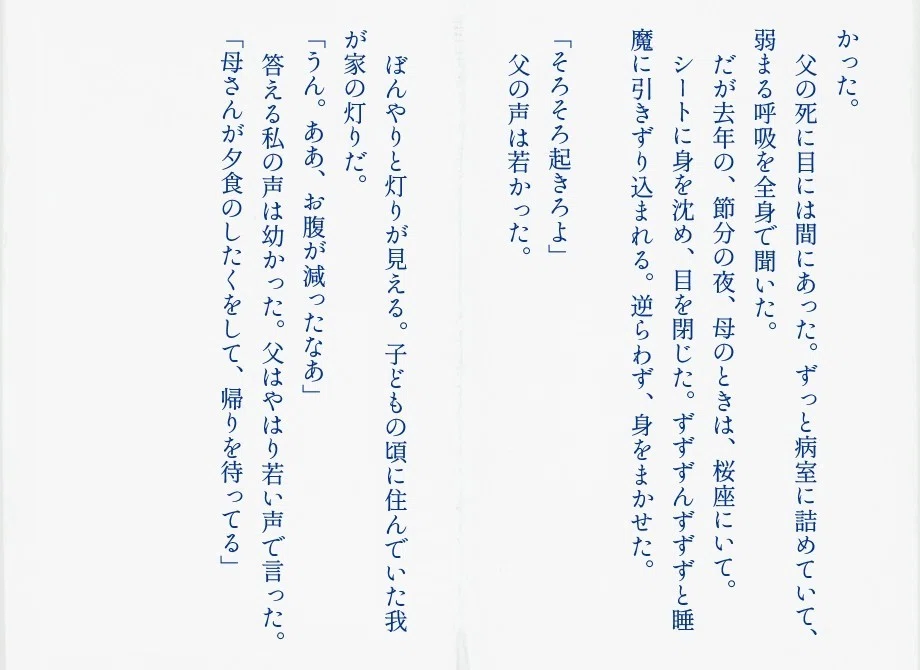 かった。
　父の死に目には間にあった。ずっと病室に詰めていて、
弱まる呼吸を全身で聞いた。
　だが去年の、節分の夜、母のときは、桜座にいて。
　シートに身を沈め、目を閉じた。ずずずんずずずと睡
魔に引きずり込まれる。逆らわず、身をまかせた。
「そろそろ起きろよ」
　父の声は若かった。
　ぼんやりと灯りが見える。子どもの頃に住んでいた我
が家の灯りだ。
「うん。ああ、お腹が減ったなあ」
　答える私の声は幼かった。父はやはり若い声で言った。
「母さんが夕食のしたくをして、帰りを待ってる」